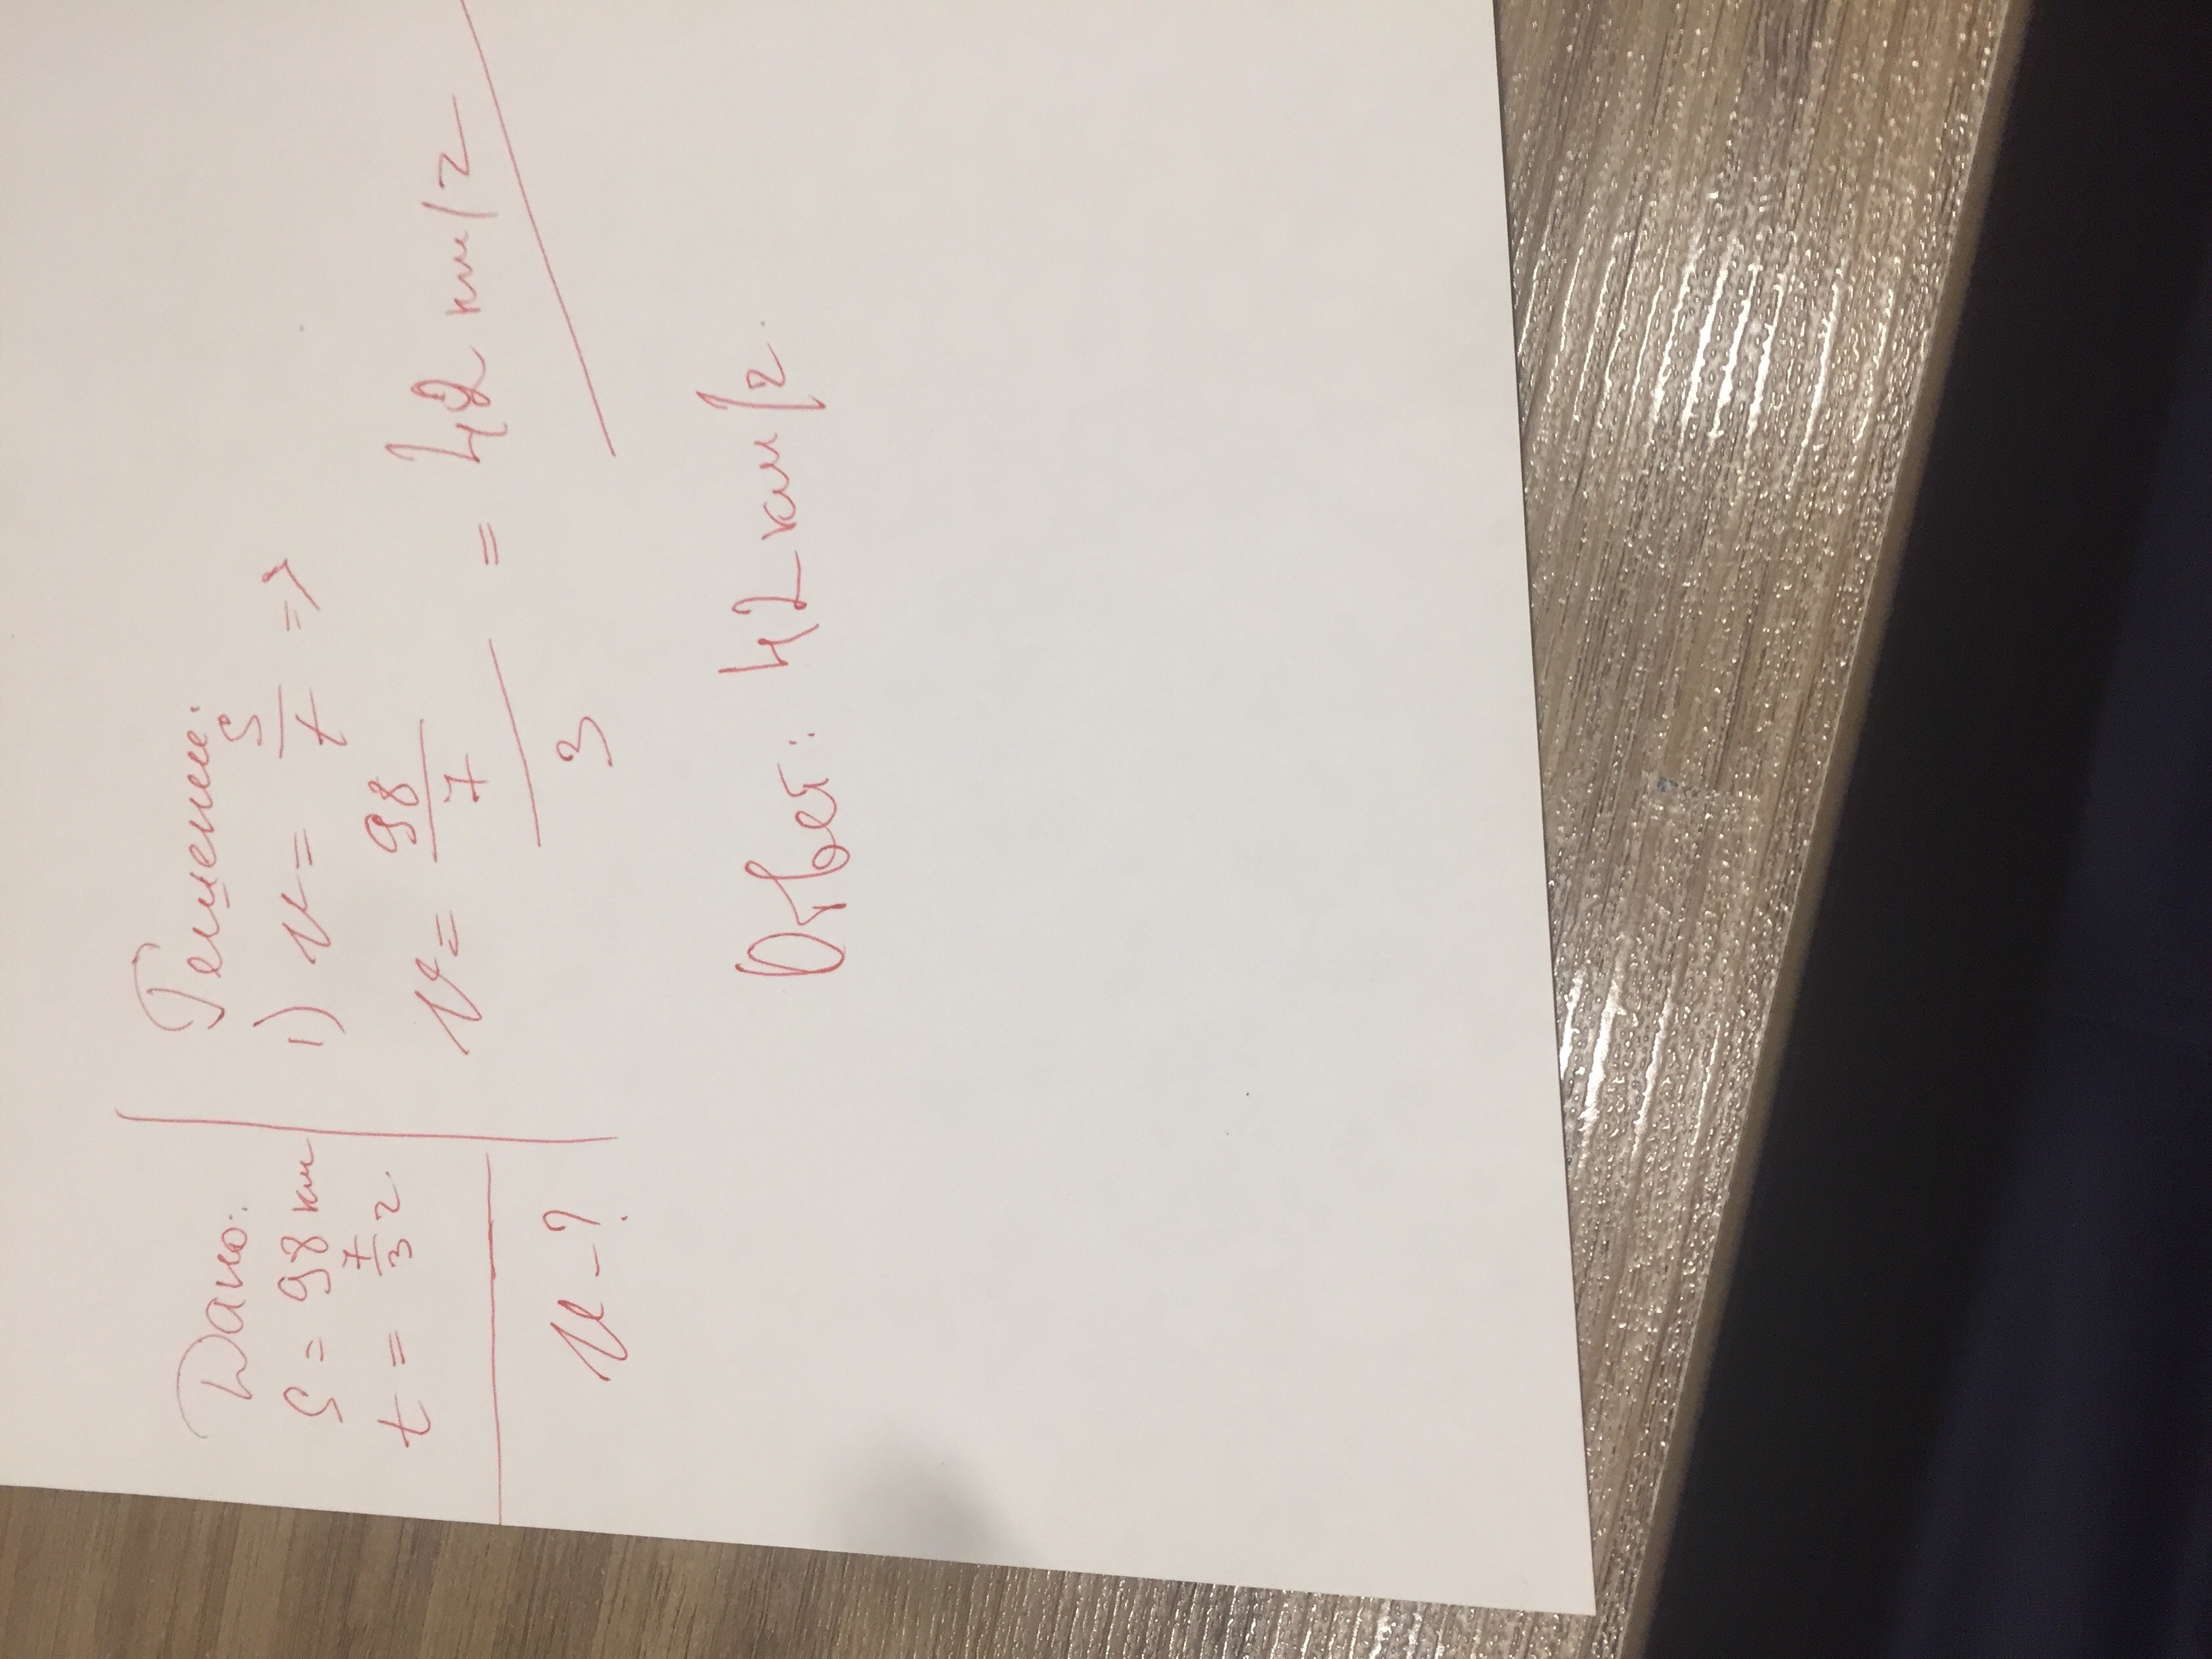 Дано:
S = 98 км
t = 7/3 ч.
v - ?
Решение:
1) v = S/t =>
v = 98/7/3 = 42 км/ч
Ответ: 42 км/ч.